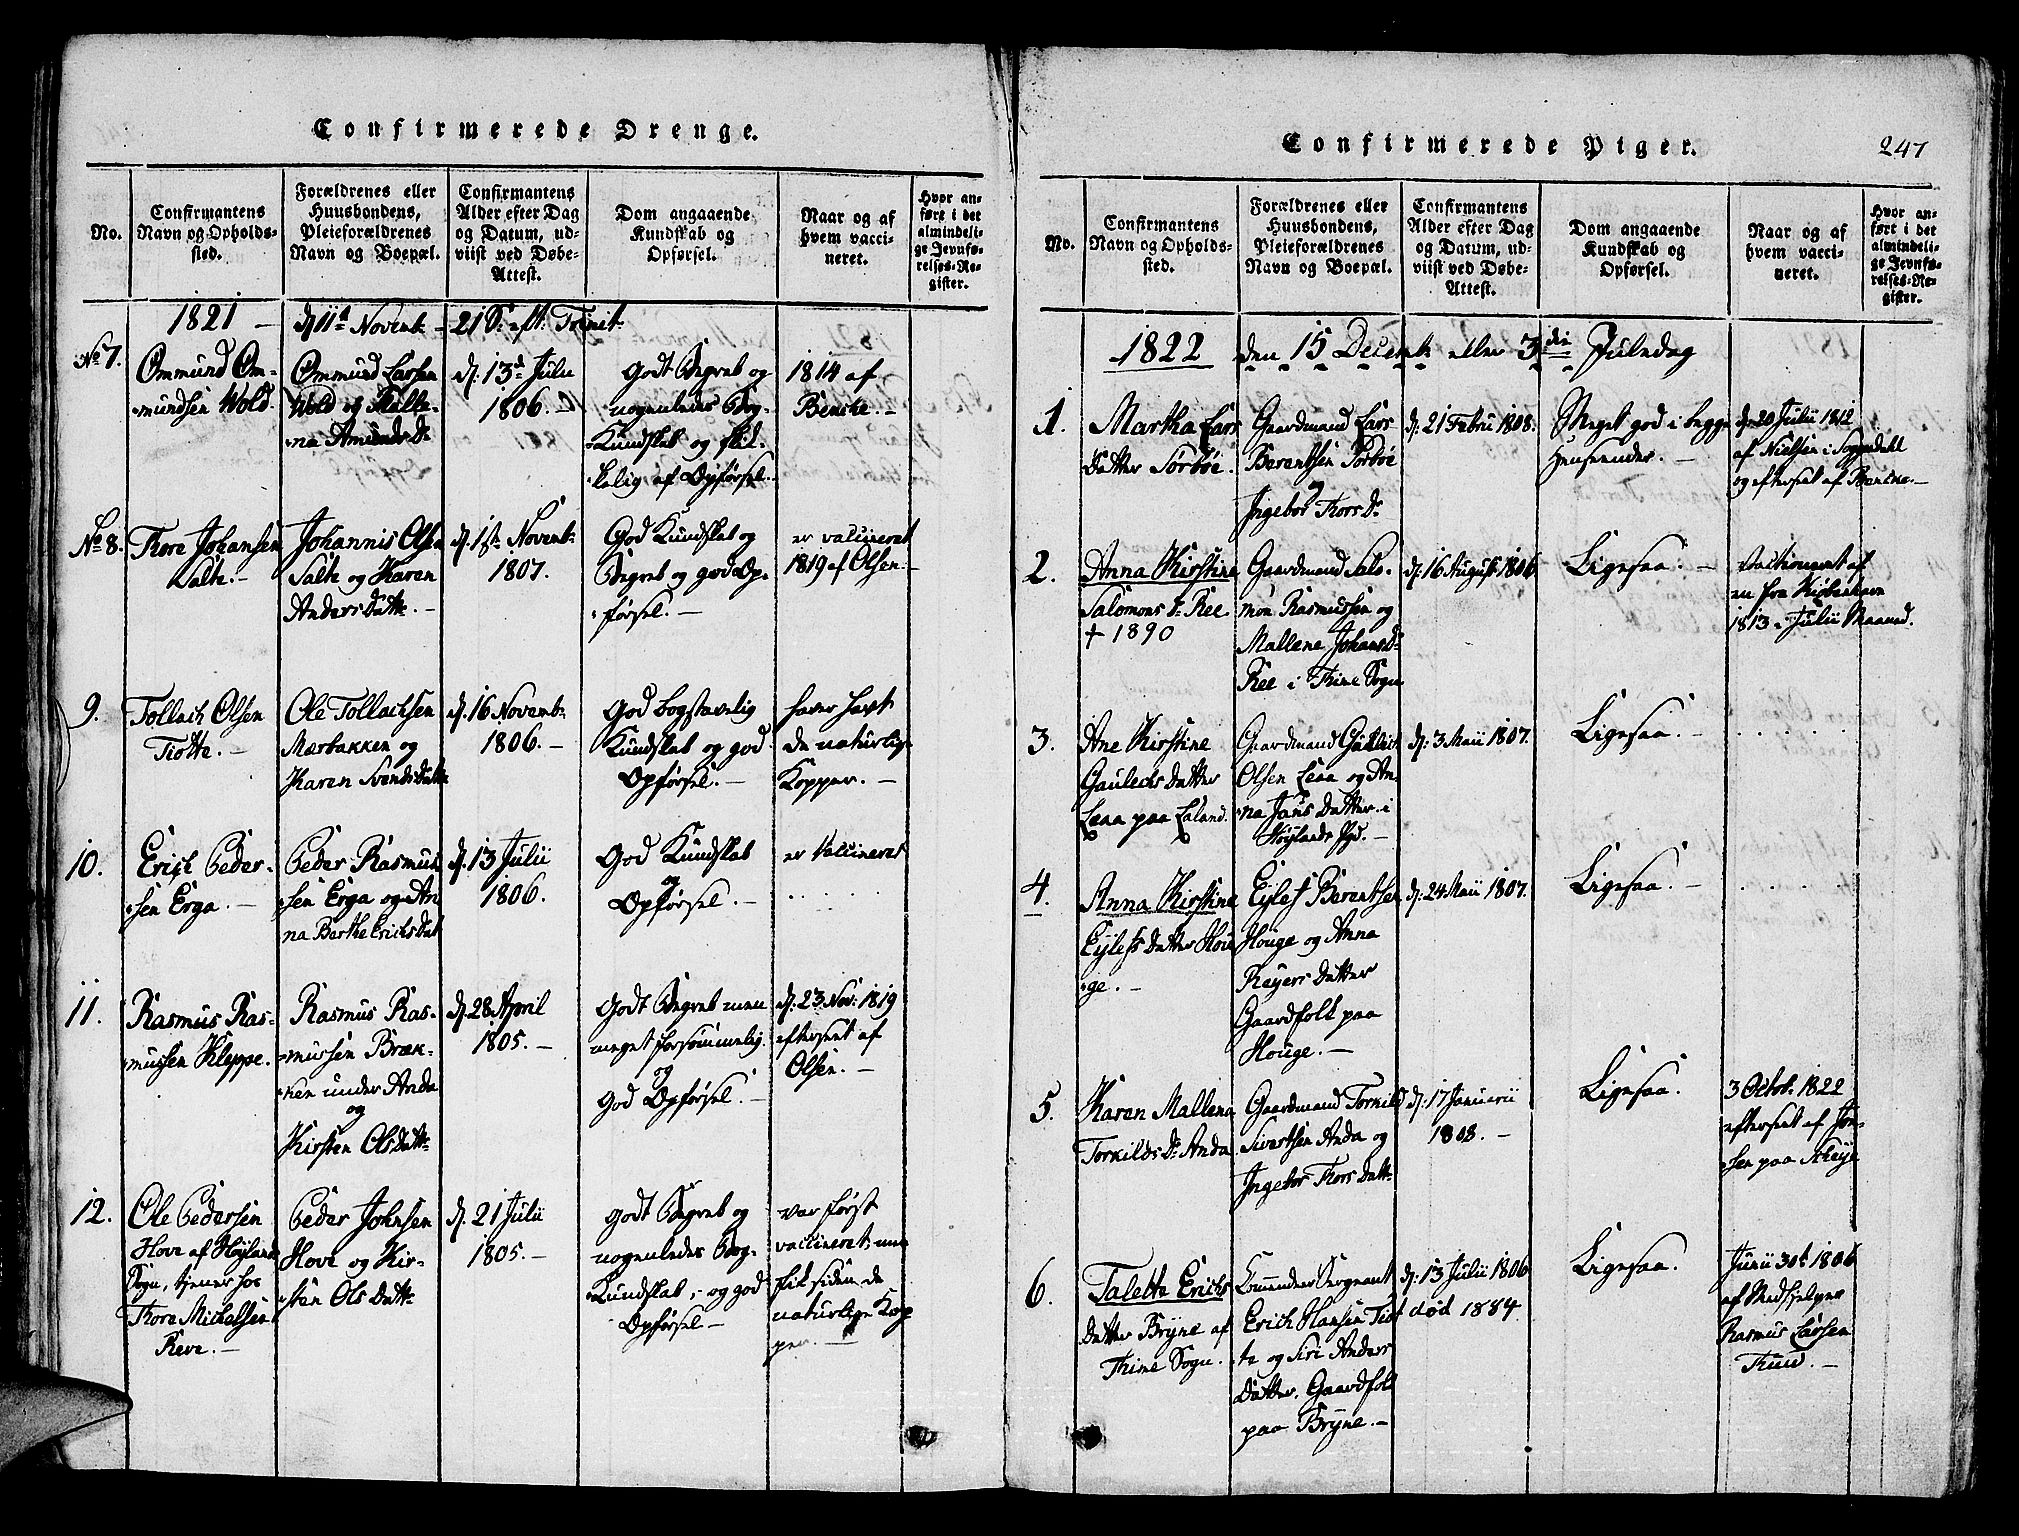 Confirmerede Drenge.
No.
Confirmantens
Navn og Opholds-
sted.
Forældrenes eller
Huusbondens,
Pleieforældrenes
Navn og Boepæl.
Confirmantens
Alder efter Dag
og Datum, ud-
viist ved Døbe-
Attest.
Dom angaaende
Kundskab og
Opførsel.
Naar og af
hvem vacci-
neret.
Hvor an-
ført i det
almindeli-
ge Jevnfø-
relses-Re-
gister.
1821 - d. 11te Novemb: - 21 S: eft: Trinit:
No 7.
Ommund Om-
mundsen Wold.
Ommund Larsen
Wold og Malle-
na Amunds D:
d. 13de Julii
1806.
Godt Begreb og
nogenledes Bog-
Kundskab og skik-
kelig af Opførsel.
1814 af
Bencke. -
No 8.
Thore Johansen
Salte. -
Johannis Olsen
Salte og Karen
Anders Datt: -
d. 1ste Novemb:
1807.
God Kundskab og
Begreb og god Op-
førsel. -
er vaccineret
1819 af Olsen. -
9.
Tollach Olsen
Tiotte. -
Ole Tollachsen
Mærbakken og
Karen Svends Datt:
d. 16 Novemb:
1806. -
God bogstavelig
Kundskab og god
Opførsel. -
haver havt
de naturlige
Kopper. -
10.
Erich Peder-
sen Erga. -
Peder Rasmus-
sen Erga og An-
na Berthe Erichs Dat
d. 13 Julii
1806.
God Kundskab
og
Opførsel. -
er Vaccineret
11.
Rasmus Ras-
mussen Kleppe.
Rasmus Ras-
mussen Bræk-
ken under Anda
og
Kirsten Ols Datt:
d. 28 April
1805. -
Godt Begreb men
meget forsømmelig.
og
God Opførsel. -
d. 23 Nov: 1819
efterseet af
Olsen. -
12.
Ole Pedersen
Hove af Høylands
Sogn, tjener hos
Thore Michelsen
Reve. -
Peder Johnsen
Hove og Kir-
sten Ols Datt:
d. 21 Julii
1805. -
Godt Begreb og
nogenledes Bog-
Kundskab, - og god
Opførsel -
var først
vaccineret, men
fik siden de
naturlige Kop
per. -
Confirmerede Piger.
247
No.
Confirmantens
Navn og Opholds-
sted.
Forældrenes eller
Huusbondens,
Pleieforældrenes
Navn og Boepæl.
Confirmantens
Alder efter Dag
og Datum, ud-
viist ved Døbe-
Attest.
Dom angaaende
Kundskab og
Opførsel.
Naar og af
hvem vacci-
neret.
Hvor an-
ført i det
almindeli-
ge Jevnfø-
relses-Re-
gister.
1822 den 15 Decemb: eller 3die Juledag
1.
Martha Lars
Datter Sørbøe.
Gaardmand Lars
Berentsen Sørbøe
og
Ingebor Thors D:
d. 21 Febru: 1808.
Meget god i begge
Henseender. -
d. 20 Julii 1812
af Nielsen i Soggendahl
og efterseet af Bencke. -
2.
Anna Kirstine
Salomons D: Ree
† 1890
Gaardmand Salo-
mon Rasmussen og
Mallene Johans D:
Ree i Thime Sogn
d. 16 August 1806
Ligesaa. -
Vaccineret af
en fra Kiøbenhavn
1813 i Julii Maaned.
3.
Ane Kirstine
Gaulechs Datter
Lea paa Laland.
Gaardmand Gullech
Olsen Lea og An-
na Jans Datter i
Høylands Sgd. -
d. 3 Maii 1807.
Ligesaa. -
4.
Anna Kirstine
Eylefs Datter Hou
ge. -
Eylef Berentsen
Houge og Anna
Reyers Datter
Gaardfolk paa
Houge. -
d. 24 Maii 1807.
Ligesaa. -
5.
Karen Mallena
Torkilds D: Anda
Gaardmand Torkild
Sivertsen Anda og
Ingebor Thors Datt:
d. 17 Januarii
1808. -
Ligesaa.
3 Octob: 1822
efterseet af Jon-
sen paa Skeye
6.
Talette Erichs
Datter Bryne af
Thime Sogn.
Commandeer Sergeant
Erich Hansen Tiot
te og Siri Anders
Datter. Gaardfolk
paa Bryne. -
d. 13 Julii 1806
død 1884.
Ligesaa.
Junii 30te 1806
af Medhjelper
Rasmus Larsen
Thuu. -